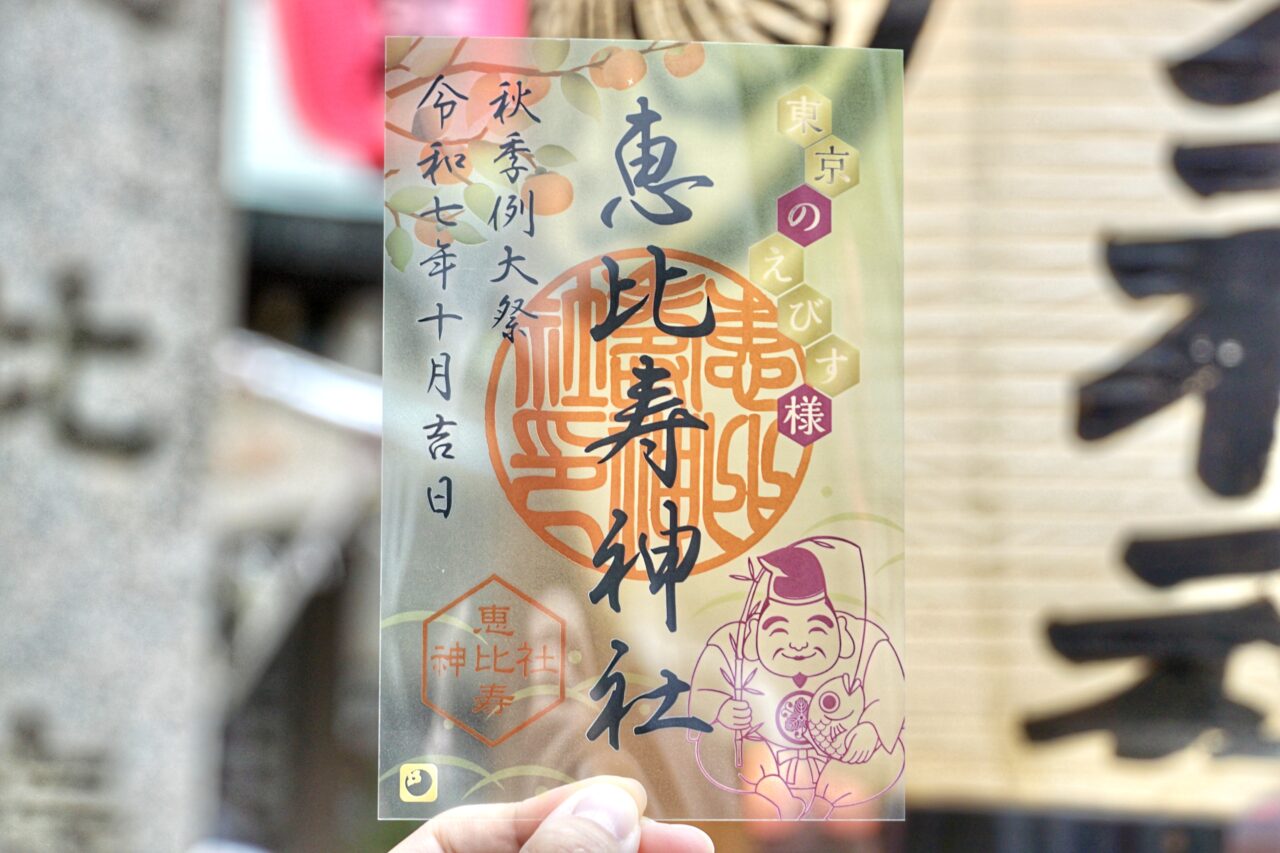 東京のえびす様
恵比寿神社
秋季例大祭
令和七年十月吉日
恵
神比社
寿